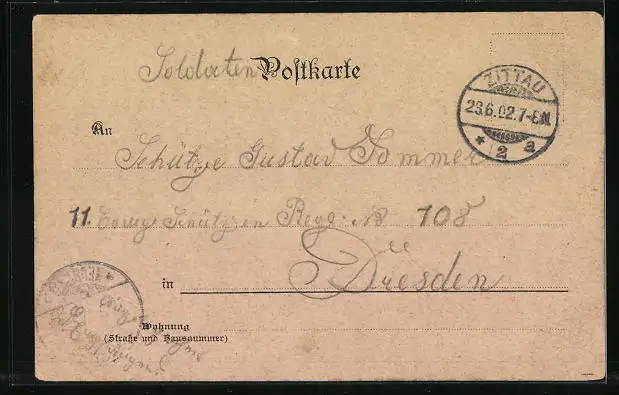 Soldaten Postkarte
ZITTAU
23.6.02.7-8N.
* 2 a
An
Schütze Gustav Sommer
11. Comp. Schützen Regt. N 108
in Dresden
Wohnung
(Straße und Hausnummer)